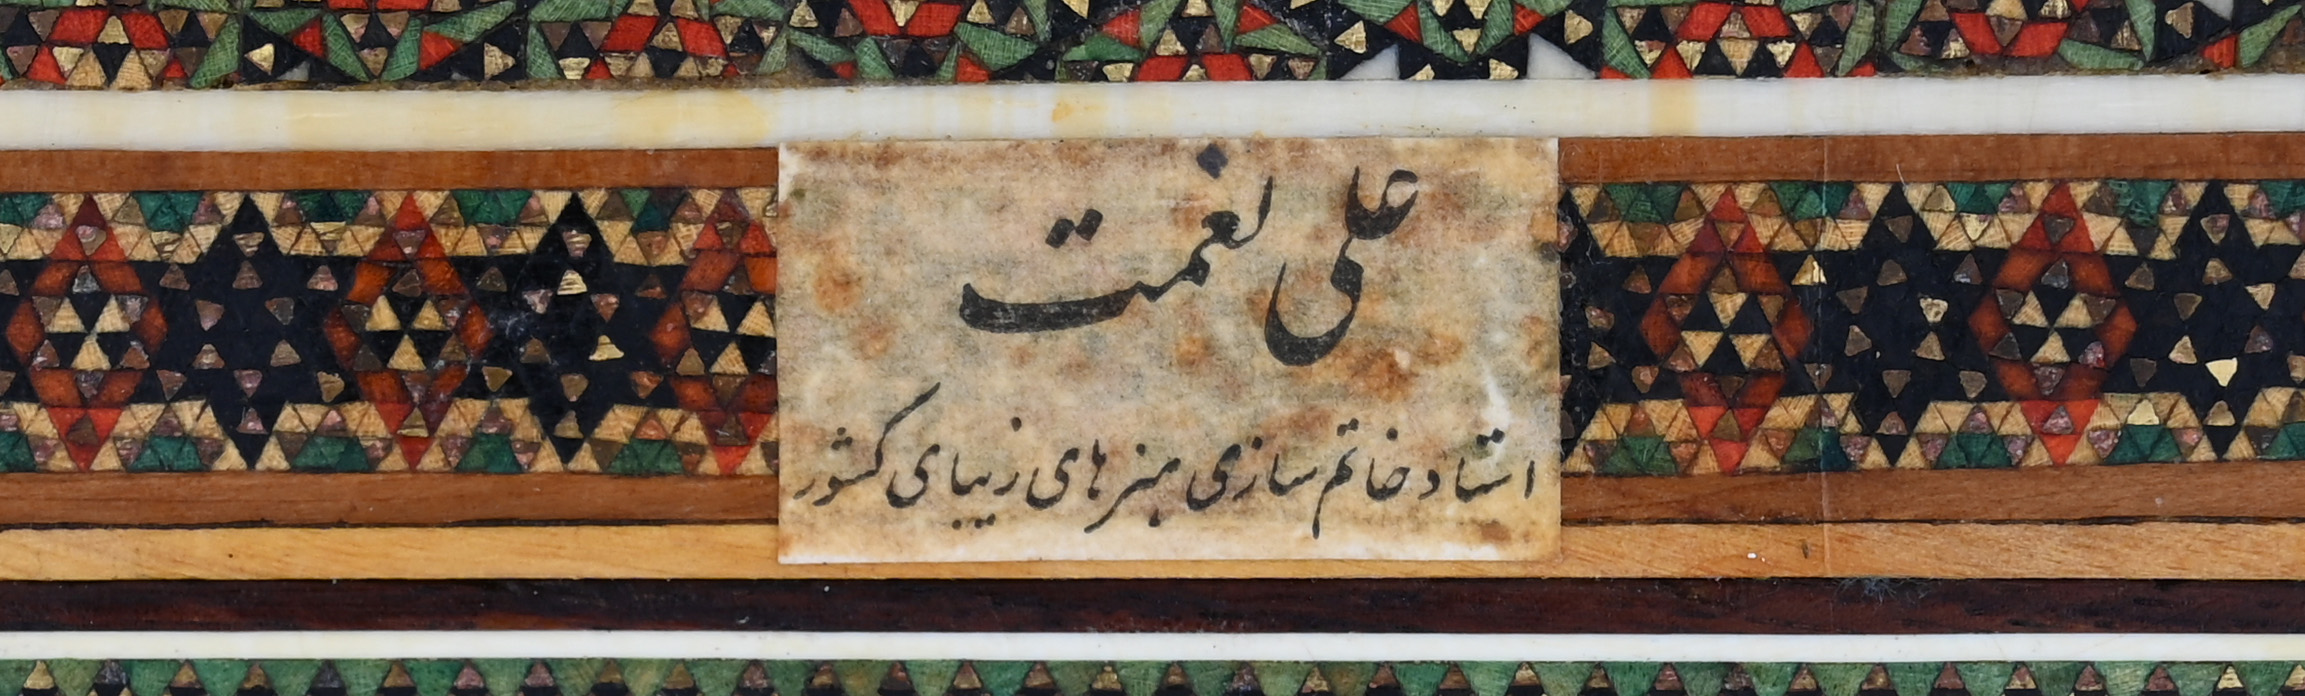 علی نعمت
استاد خاتم سازی هنرهای زیبای کشور